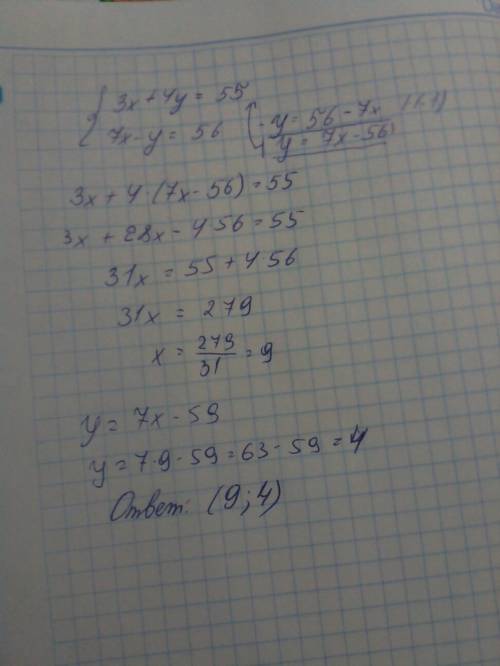 { 3x + 4y = 55
7x - y = 56
-y = 56 - 7x | (-1)
y = 7x - 56
3x + 4 · (7x - 56) = 55
3x + 28x - 4 56 = 55
31x = 55 + 4 56
31x = 279
x = 279/31 = 9
y = 7x - 59
y = 7·9 - 59 = 63 - 59 = 4
Ответ: (9; 4)